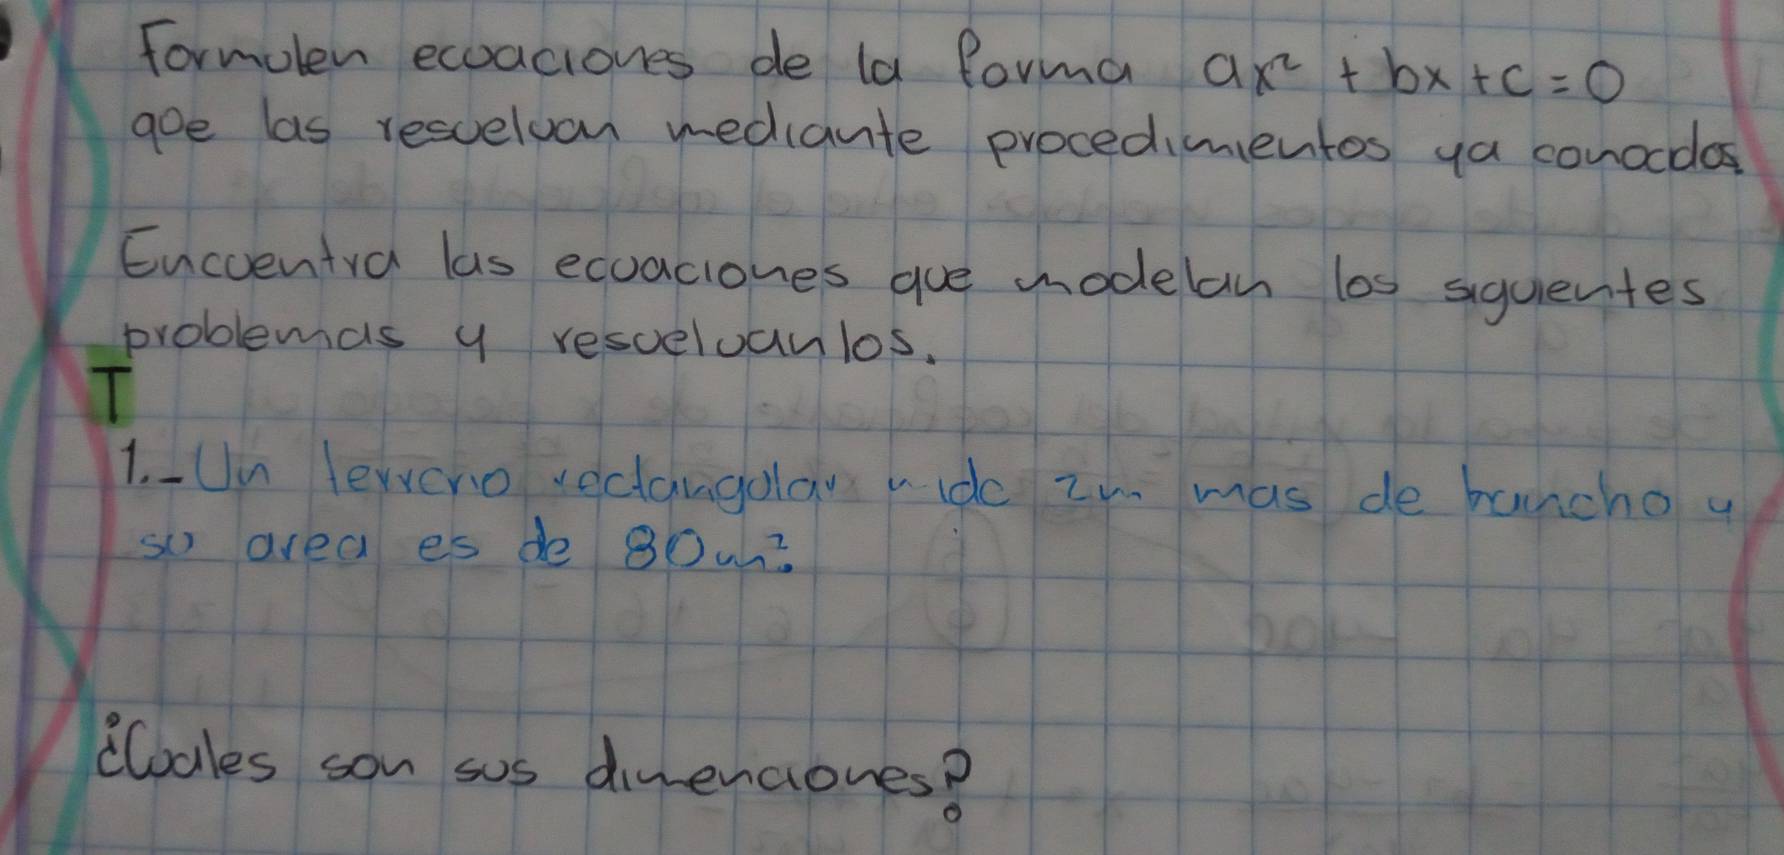 Formulen ecuaciones de la forma ax² + bx + c = 0
que las resuelvan mediante procedimientos ya conocdos.
Encuentra las ecuaciones que modelan los siguientes
problemas y resuelvanlos.
T
1.- Un terreno rectangular mide 2m mas de hancho y
su area es de 80m².
¿Cuales son sus dimenciones?